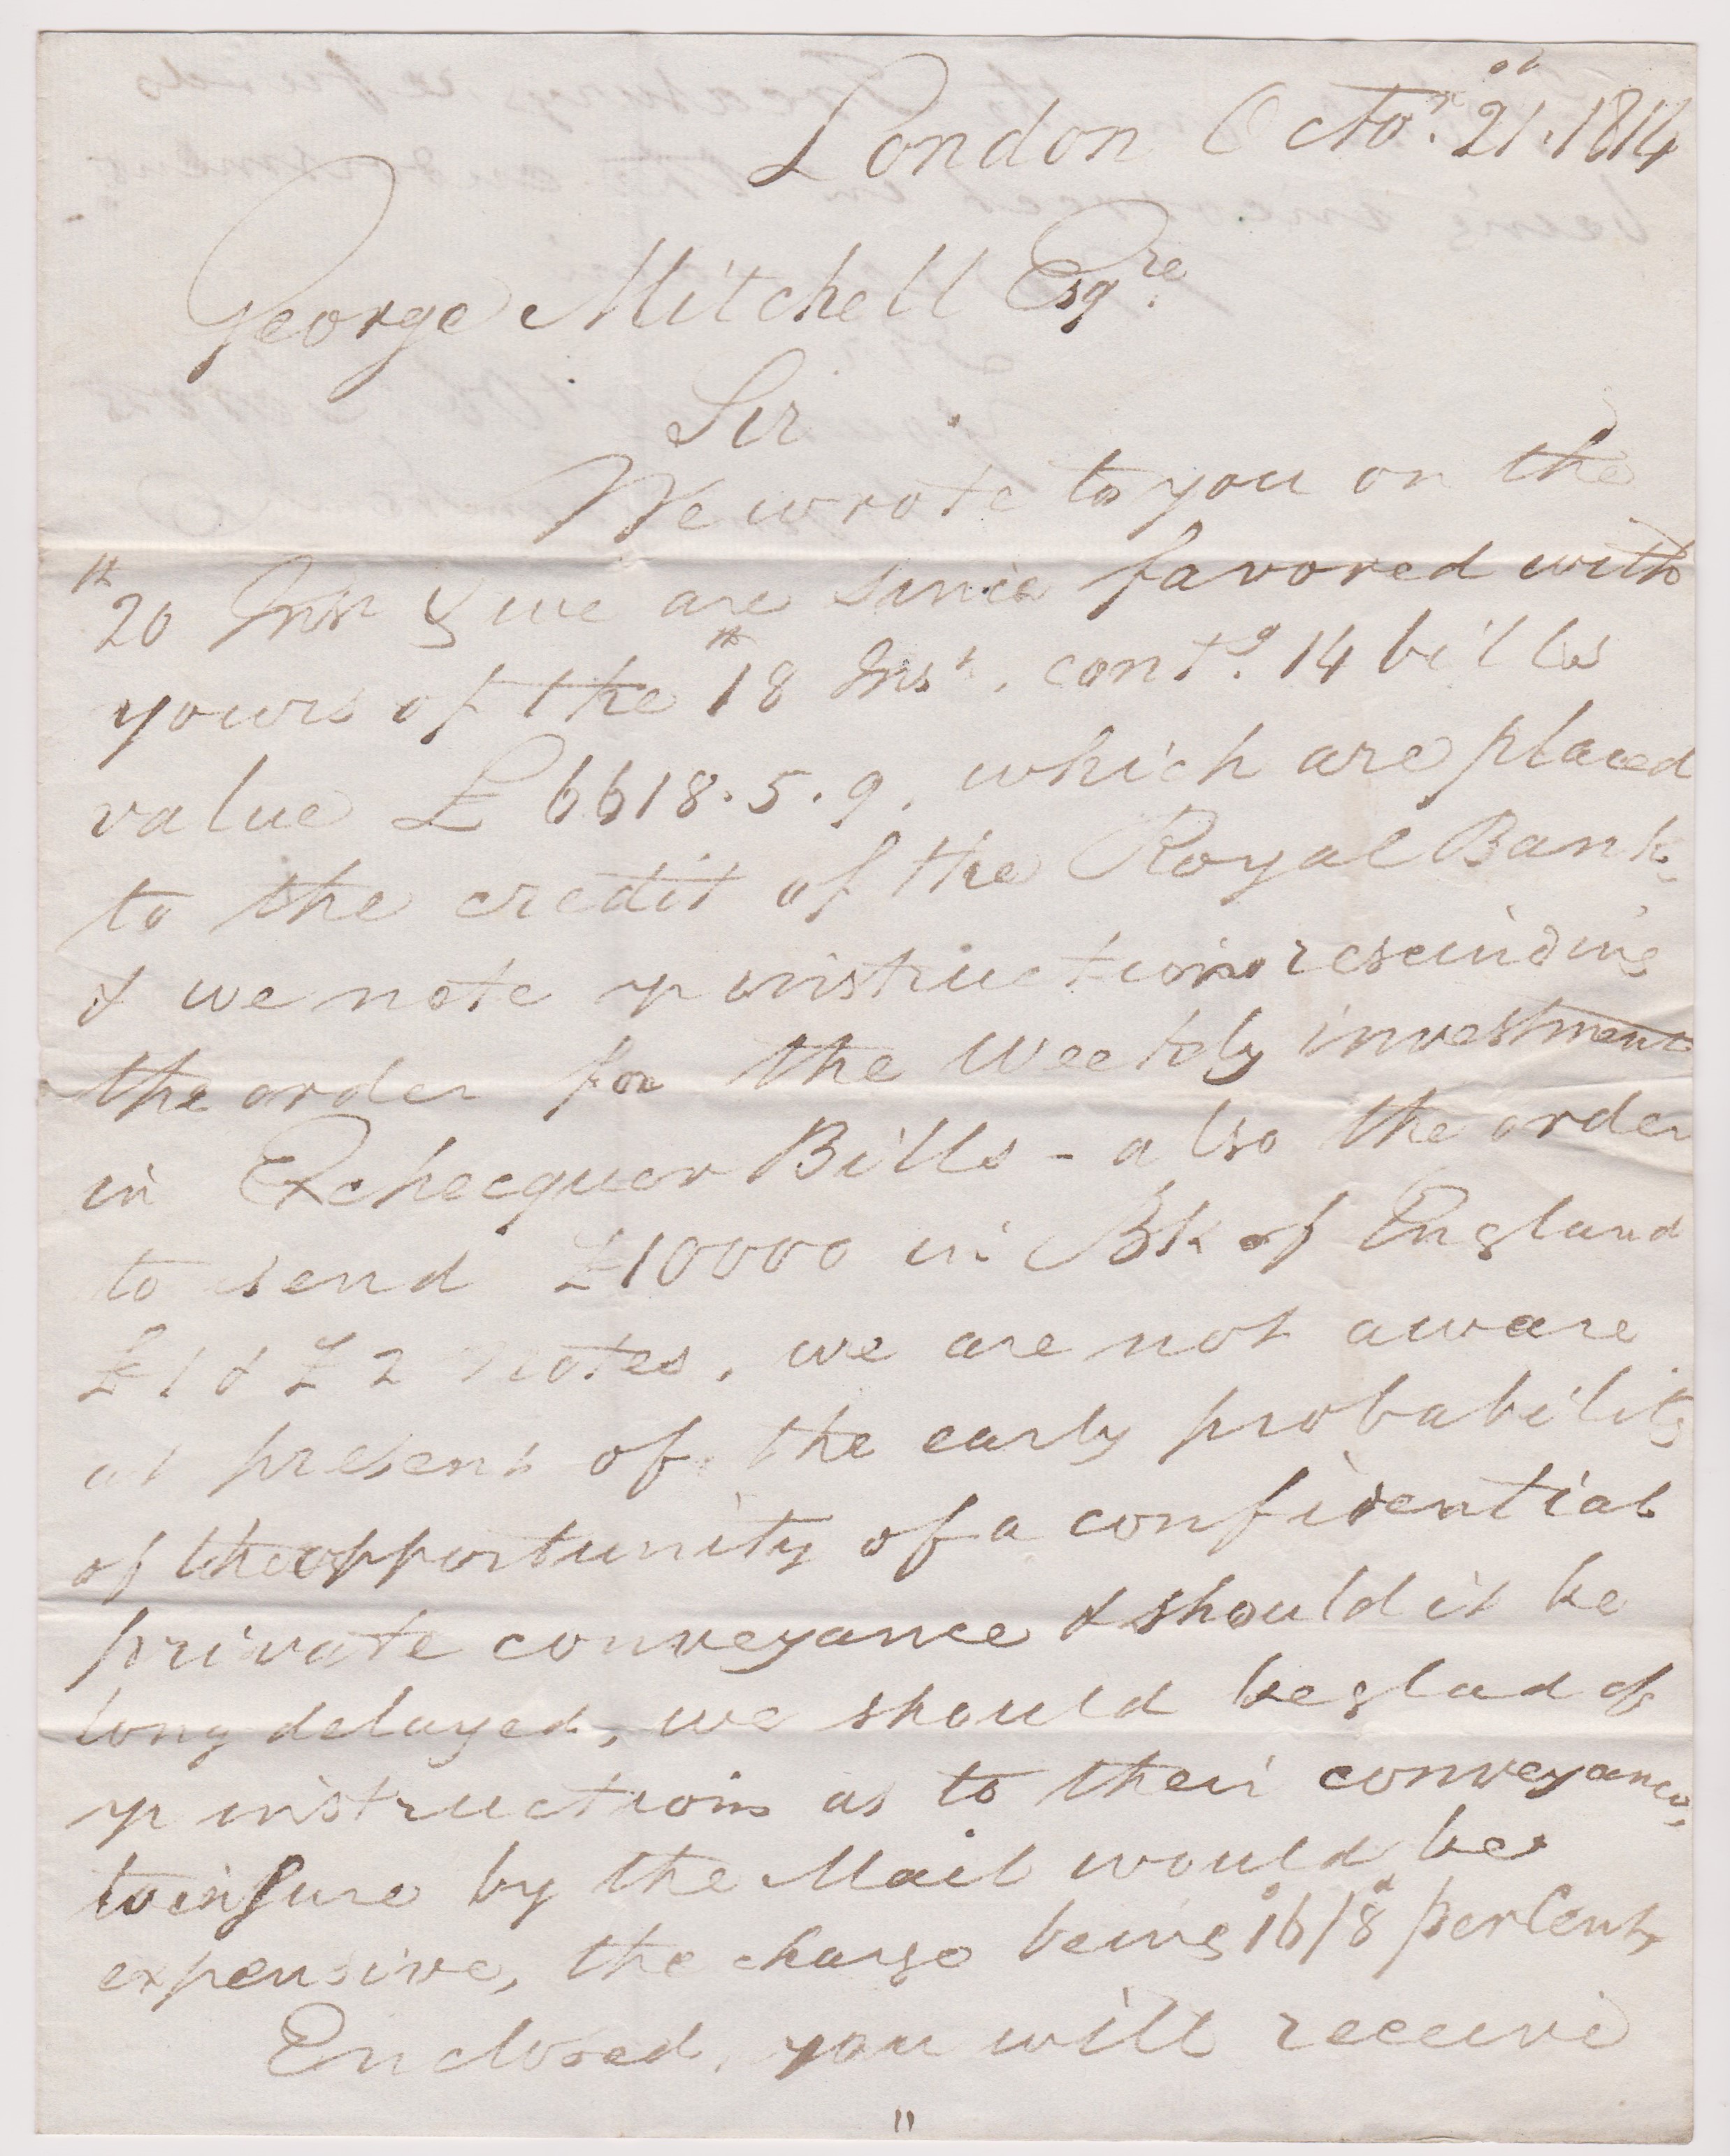 London Octor. 21st. 1814
George Mitchell Esqre.
Sir
We wrote to you on the
20th Inst & we are since favored with
yours of the 18th Inst. contg. 14 bills
value £6618.5.9. which are placed
to the credit of the Royal Bank,
& we note yr instructions rescinding
the order for the Weekly investment
in Exchecquer Bills - also the order
to send £10000 in Bk of England
£1 & £2 notes, we are not aware
at present of the early probability
of the opportunity of a confidential
private conveyance & should it be
long delayed, we should be glad of
yr instructions as to their conveyance,
to insure by the Mail would be
expensive, the charge being 16s/8d per Cent,
Enclosed, you will receive